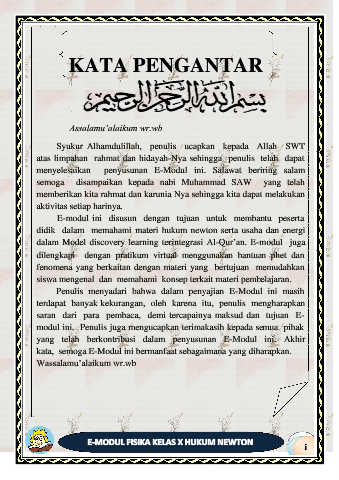 KATA PENGANTAR
بسم الله الرحمن الرحيم
Assalamu'alaikum wr.wb
Syukur Alhamdulillah, penulis ucapkan kepada Allah SWT
atas limpahan rahmat dan hidayah-Nya sehingga penulis telah dapat
menyelesaikan penyusunan E-Modul ini. Salawat beriring salam
semoga disampaikan kepada nabi Muhammad SAW yang telah
memberikan kita rahmat dan karunia Nya sehingga kita dapat melakukan
aktivitas setiap harinya.
E-modul ini disusun dengan tujuan untuk membantu peserta
didik dalam memahami materi hukum newton serta usaha dan energi
dalam Model discovery learning terintegrasi Al-Qur'an. E-modul juga
dilengkapi dengan pratikum virtual menggunakan bantuan phet dan
fenomena yang berkaitan dengan materi yang bertujuan memudahkan
siswa mengenal dan memahami konsep terkait materi pembelajaran.
Penulis menyadari bahwa dalam penyajian E-Modul ini masih
terdapat banyak kekurangan, oleh karena itu, penulis mengharapkan
saran dari para pembaca, demi tercapainya maksud dan tujuan E-
modul ini. Penulis juga mengucapkan terimakasih kepada semua pihak
yang telah berkontribusi dalam penyusunan E-Modul ini. Akhir
kata, semoga E-Modul ini bermanfaat sebagaimana yang diharapkan.
Wassalamu'alaikum wr.wb
E-MODUL FISIKA KELAS X HUKUM NEWTON
i